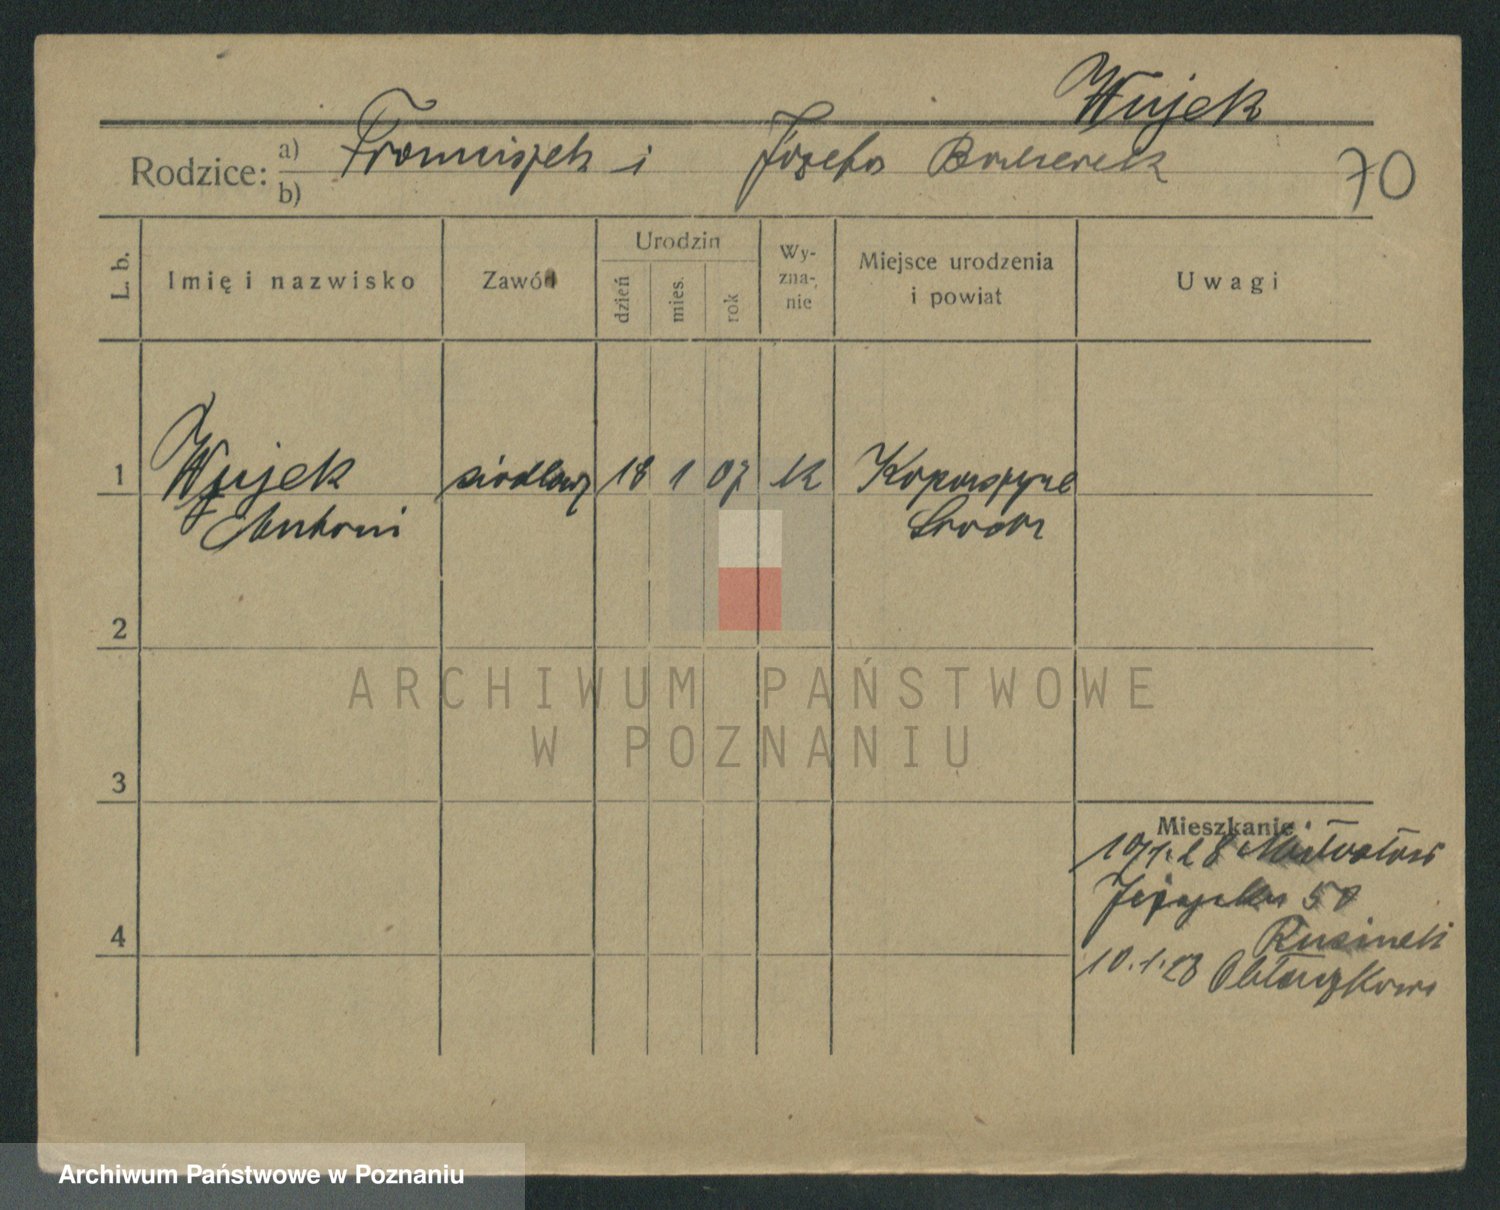 Wujek
Rodzice: a) Franciszek i Józefa
b)
70
L. b.
Imię i nazwisko
Zawód
Urodzin
dzień
mies.
rok
Wy-
zna-
nie
Miejsce urodzenia
i powiat
Uwagi
1
Wujek
Antoni
siodlarz
18 1 07
k
Środa
2
ARCHIWUM PAŃSTWOWE
W POZNANIU
3
Mieszkanie
10/1.28
50
4
Rusinek
10.1.28
Archiwum Państwowe w Poznaniu